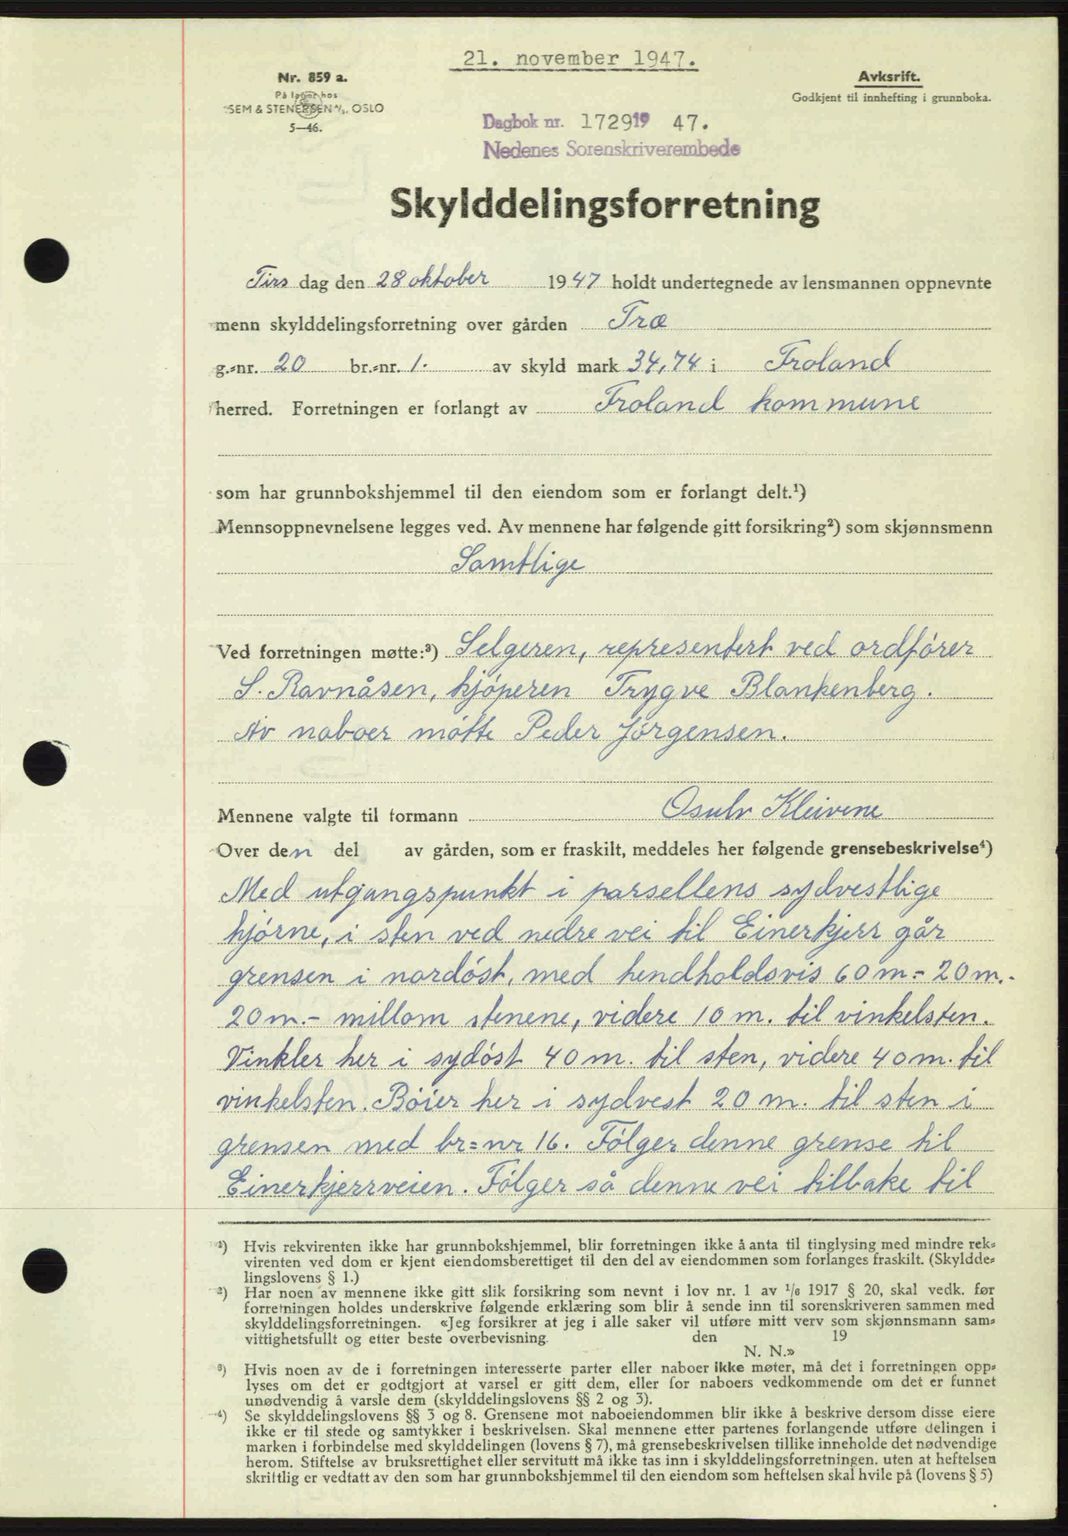 21. november 1947.
Nr. 859 a.
På lager hos
SEM & STENERSEN A/S, OSLO
5—46.
Avksrift.
Godkjent til innhefting i grunnboka.
Dagbok nr. 1729 19 47.
Nedenes Sorenskriverembede
Skylddelingsforretning
Tirs dag den 28 oktober 1947 holdt undertegnede av lensmannen oppnevnte
menn skylddelingsforretning over gården Træ
g.=nr. 20 br.=nr. 1. av skyld mark 34,74 i Froland
herred. Forretningen er forlangt av Froland kommune
som har grunnbokshjemmel til den eiendom som er forlangt delt.¹)
Mennsoppnevnelsene legges ved. Av mennene har følgende gitt forsikring²) som skjønnsmenn
Samtlige
Ved forretningen møtte:³) Selgeren, representert ved ordfører
S. Ravnåsen, kjøperen Trygve Blankenberg.
Av naboer møtte Peder Jørgensen.
Mennene valgte til formann Osulv Kleivene
Over den del av gården, som er fraskilt, meddeles her følgende grensebeskrivelse⁴)
Med utgangspunkt i parsellens sydvestlige
hjørne, i sten ved nedre vei til Einerkjerr går
grensen i nordøst, med hendholdsvis 60 m.- 20 m.-
20 m.- millom stenene, videre 10 m. til vinkelsten.
Vinkler her i sydøst 40 m. til sten, videre 40 m. til
vinkelsten. Bøier her i sydvest 20 m. til sten i
grensen med br=nr 16. Følger denne grense til
Einerkjerrveien. Følger så denne vei tilbake til
¹) Hvis rekvirenten ikke har grunnbokshjemmel, blir forretningen ikke å anta til tinglysing med mindre rek=
virenten ved dom er kjent eiendomsberettiget til den del av eiendommen som forlanges fraskilt. (Skyldde=
lingslovens § 1.)
²) Har noen av mennene ikke gitt slik forsikring som nevnt i lov nr. 1 av 1/6 1917 § 20, skal vedk. før
forretningen holdes underskrive følgende erklæring som blir å sende inn til sorenskriveren sammen med
skylddelingsforretningen. «Jeg forsikrer at jeg i alle saker vil utføre mitt verv som skjønnsmann sam=
vittighetsfullt og etter beste overbevisning. den 19
N. N.»
³) Hvis noen av de i forretningen interesserte parter eller naboer ikke møter, må det i forretningen opp=
lyses om det er godtgjort at varsel er gitt dem, eller for naboers vedkommende om det er funnet
unødvendig å varsle dem (skylddelingslovens §§ 2 og 3).
⁴) Se skylddelingslovens §§ 3 og 8. Grensene mot naboeiendommen blir ikke å beskrive dersom disse eiere
ikke er til stede og samtykker i beskrivelsen. Skal mennene etter partenes forlangende utføre delingen i
marken i forbindelse med skylddelingen (lovens § 7), må grensebeskrivelsen tillike inneholde det nødvendige
herom. Stiftelse av bruksrettighet eller servitutt må ikke tas inn i skylddelingsforretningen. uten at heftelsen
skriftlig er vedtatt av den som har grunnbokshjemmel til den eiendom som heftelsen skal hvile på (lovens § 5)